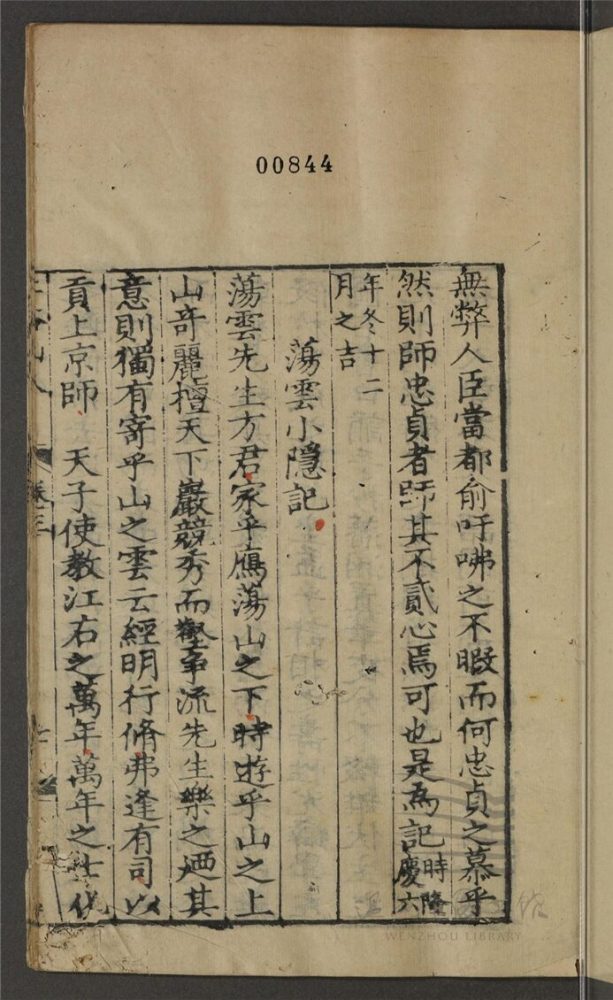 00844
無弊人臣當都俞吁咈之不暇而何忠貞之慕乎
然則師忠貞者師其不貳心焉可也是為記時隆慶六
年冬十二月之吉
蕩雲小隱記
蕩雲先生方君家乎鴈蕩山之下時遊乎山之上
山奇麗擅天下巖競秀而壑爭流先生樂之迺其
意則獨有寄乎山之雲云經明行脩弗逢有司以
貢上京師 天子使教江右之萬年萬年之士
WENZHOU LIBRARY